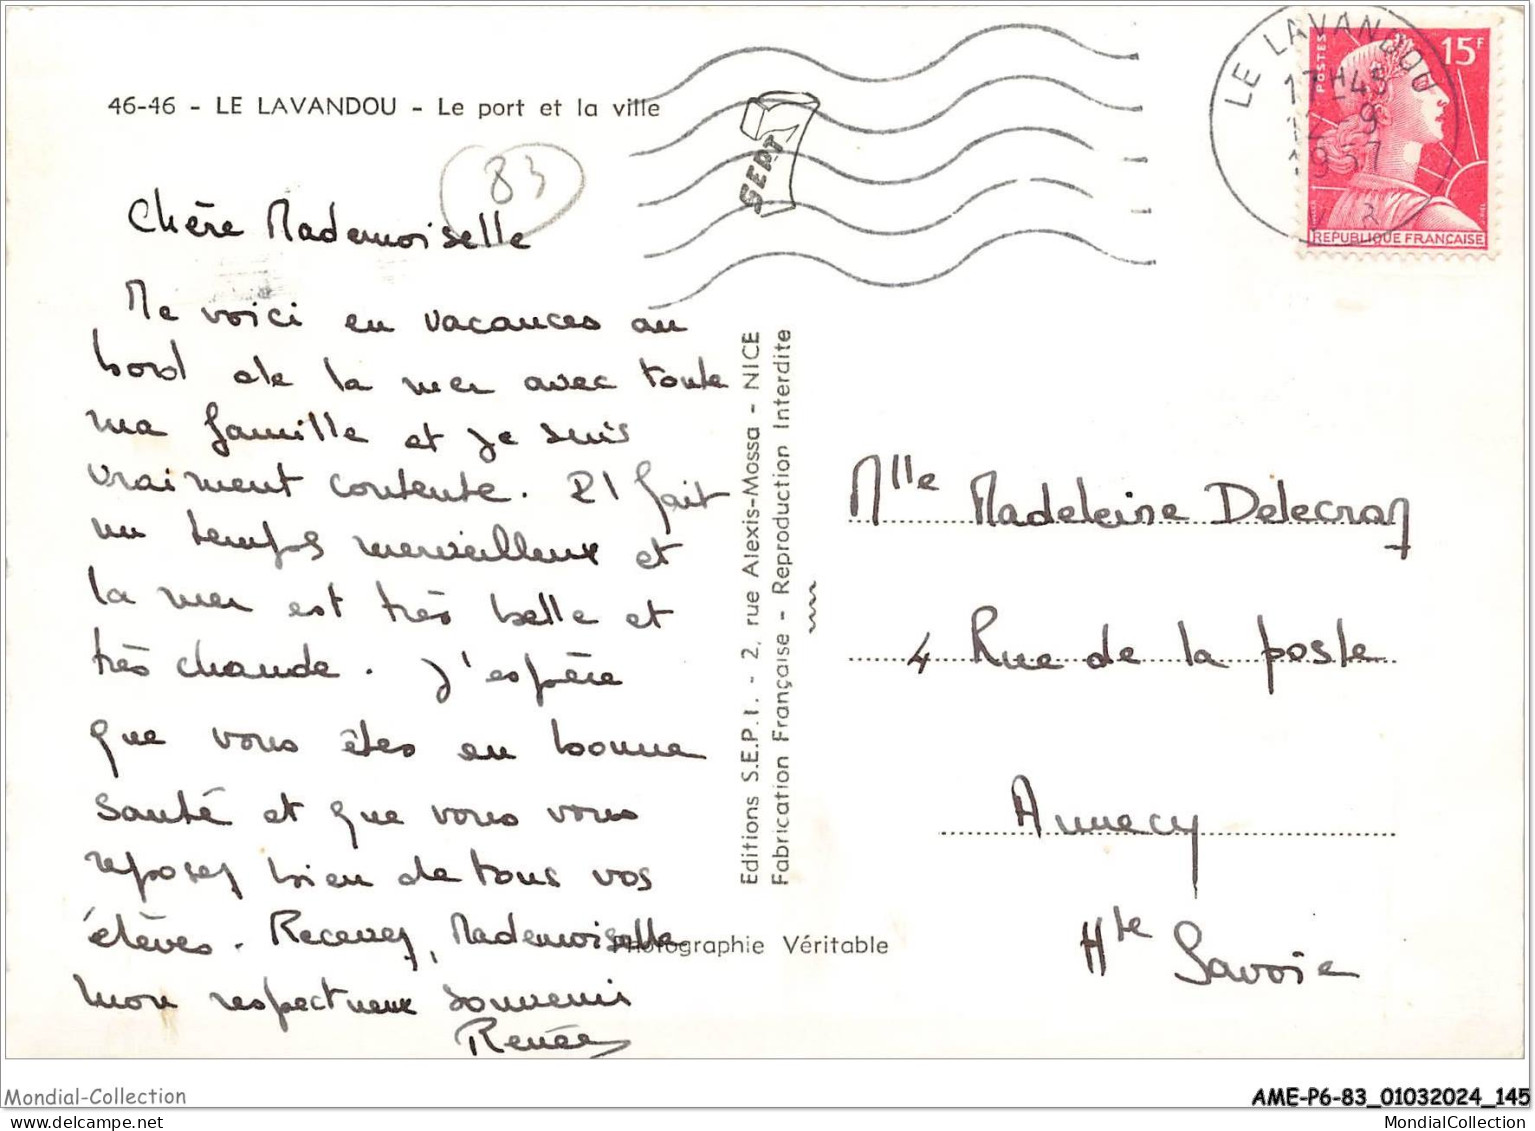 46-46 - LE LAVANDOU - Le port et la ville
83
SEPT
LE LAVANDOU
17H45
12-9
1957
VAR
POSTES
15F
REPUBLIQUE FRANÇAISE
Chère Mademoiselle
Me voici en vacances au
bord de la mer avec toute
ma famille et je suis
vraiment contente. Il fait
un temps merveilleux et
la mer est très belle et
très chaude. J'espère
que vous êtes en bonne
santé et que vous vous
reposez bien de tous vos
élèves. Recevez, Mademoiselle
mon respectueux souvenir
Renée
Editions S.E.P.I. - 2, rue Alexis-Mossa - NICE
Fabrication Française - Reproduction Interdite
Photographie Véritable
Mlle Madeleine Delecraz
4 Rue de la poste
Annecy
Hte Savoie
Mondial-Collection
AME-P6-83_01032024_145
MondialCollection